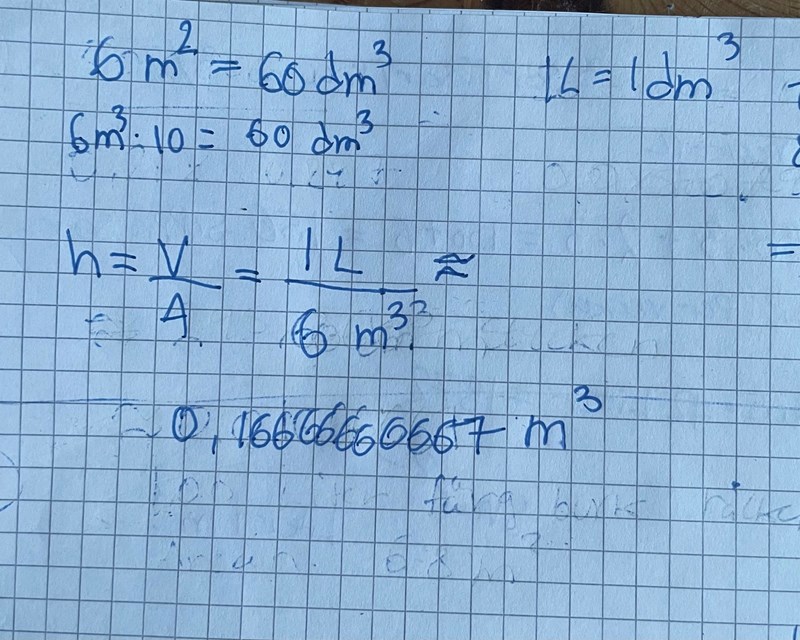 6 m² = 60 dm³
1L = 1dm³
6m³ · 10 = 60 dm³
h = V/A = 1 L / 6 m³² ≈
0,16666660667 m³
färg